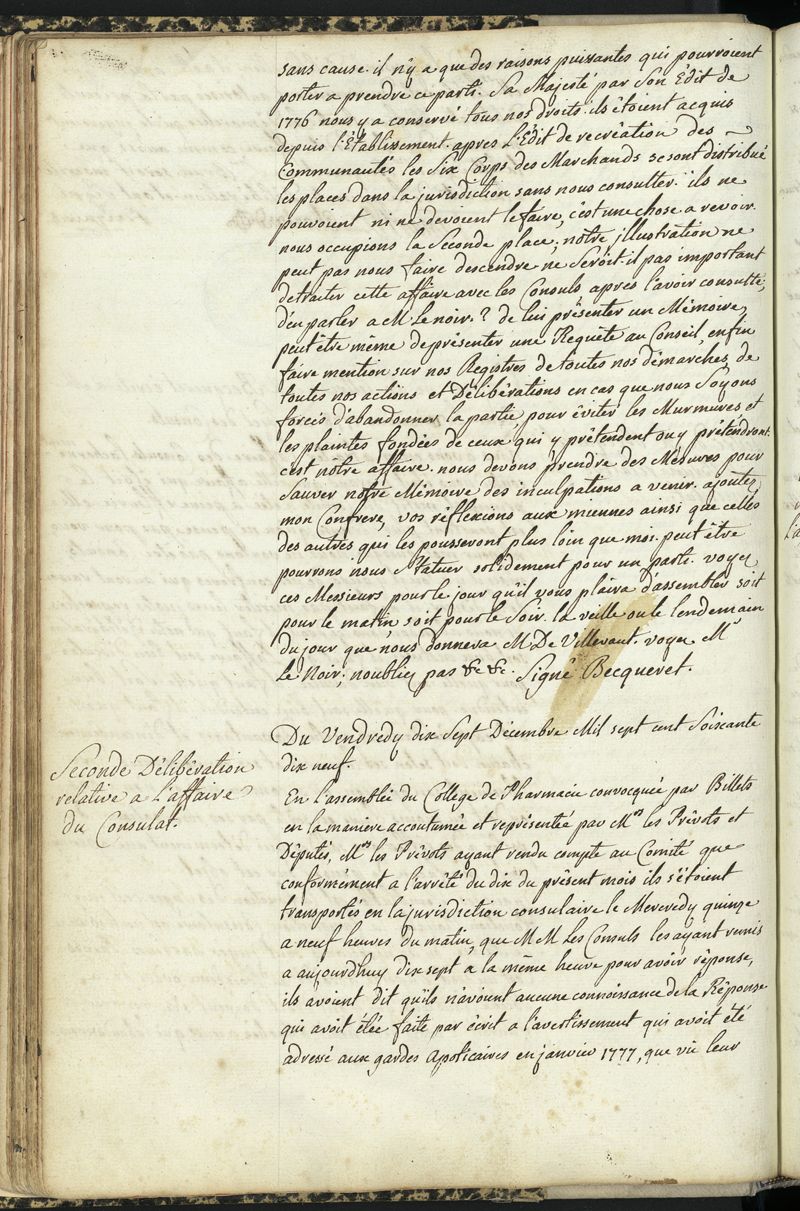 sans cause. il n'y a que des raisons puissantes qui pourroient
porter a prendre ce parti. Sa Majesté par Son Edit de
1776 nous y a conservé tous nos droits. ils étoient acquis
depuis l'Etablissement. apres L'Edit de recréation des
Communautés les Six Corps des Marchands se sont distribué
les places dans la jurisdiction sans nous consulter. ils ne
pouvoient ni ne devoient le faire, c'est une chose a revoir.
nous occupions la Seconde place; notre illustration ne
peut pas nous faire descendre ne Seroit-il pas important
de traiter cette affaire avec les Consuls après l'avoir consulté,
d'en parler a M. Le noir.? de lui présenter un Mémoire,
peut être même de présenter une Requête au Conseil, enfin
faire mention sur nos Registres de toutes nos démarches, de
toutes nos actions et Délibérations en cas que nous Soyons
forcés d'abandonner la partie, pour éviter les Murmures et
les plaintes fondées de ceux qui y prétendent ou y prétendront.
c'est nôtre affaire. nous devons prendre des Mesures pour
Sauver notre Mémoire des inculpations a venir. ajoutez,
mon Confrere, vos réflexions aux miennes ainsi que celles
des autres qui les pousseront plus loin que moi. peut être
pourrons nous Statuer solidement pour un parti. voyez
ces Messieurs pour le jour qu'il vous plaira d'assembler soit
pour le matin soit pour le Soir. la veille ou le lendemain
du jour que nous donnera M. De Villevaut. voyez Mr
Le Noir; n'oubliez pas &c &c. Signé Becqueret.
Du Vendredy dix Sept Décembre Mil sept cent Soixante
dix neuf.
Seconde Délibération
relative a L'affaire
du Consulat.
En l'assemblée du College de Pharmacie convocquée par Billets
en la maniere accoutumée et représentée par Mrs les Prévots et
Députés, Mrs les Prévots ayant rendu compte au Comité que
conformément a l'arrêté du dix du présent mois ils s'étoient
transportés en la jurisdiction consulaire le Mercredy quinze
a neuf heures du matin, que MM Les Consuls les ayant remis
a aujourdhuy dix sept a la même heure pour avoir réponse,
ils avoient dit qu'ils n'avoient aucune connoissance de la Réponse
qui avoit étée faite par écrit a l'avertissement qui avoit été
adressé aux gardes apoticaires en janvier 1777, que vû leur